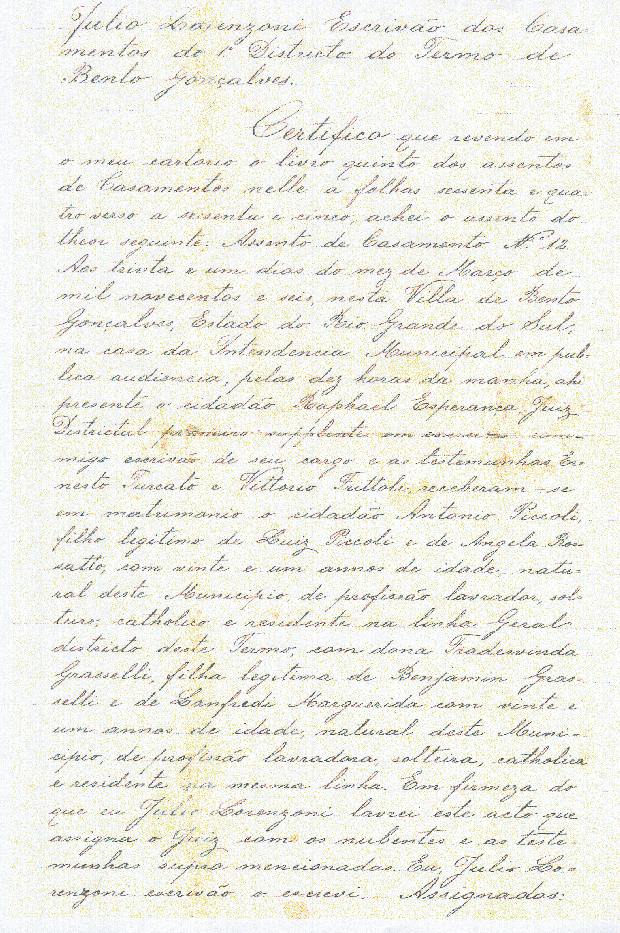 Julio Lorenzoni Escrivão dos Casa
mentos do 1º Districto do Termo de
Bento Gonçalves.
Certifico que revendo em
o meu cartorio o livro quinto dos assentos
de Casamentos nelle a folhas sessenta e qua-
tro verso a sessenta e cinco, achei o assento do
theor seguinte: Assento de Casamento Nº 12
Aos trinta e um dias do mez de Março de
mil novecentos e seis, nesta Villa de Bento
Gonçalves, Estado do Rio Grande do Sul,
na casa da Intendencia Municipal em pub-
lica audiencia, pelas dez horas da manhã, ahi
presente o cidadão Raphael Esperança Juiz
Districtal primeiro supplente em exercicio com-
migo escrivão de seu cargo e as testemunhas Er-
nesto Turcato e Vittorio Tuttoli, receberam-se
em matrimonio o cidadão Antonio Piccoli,
filho legitimo de Luiz Piccoli e de Angela Ros-
satto, com vinte e um annos de idade, natu-
ral deste Municipio, de profissão lavrador, sol-
teiro, catholico e residente na linha Geral
districto deste Termo, com dona Fradewinda
Grasselli, filha legitima de Benjamin Gras-
selli e de Lanfredi Marguerida com vinte e
um annos de idade, natural deste Muni-
cipio, de profissão lavradora, solteira, catholica
e residente na mesma linha. Em firmeza do
que eu Julio Lorenzoni lavrei este acto que
assigna o Juiz com os nubentes e as teste-
munhas supra mencionadas. Eu, Julio Lo-
renzoni escrivão o escrevi. Assignados: